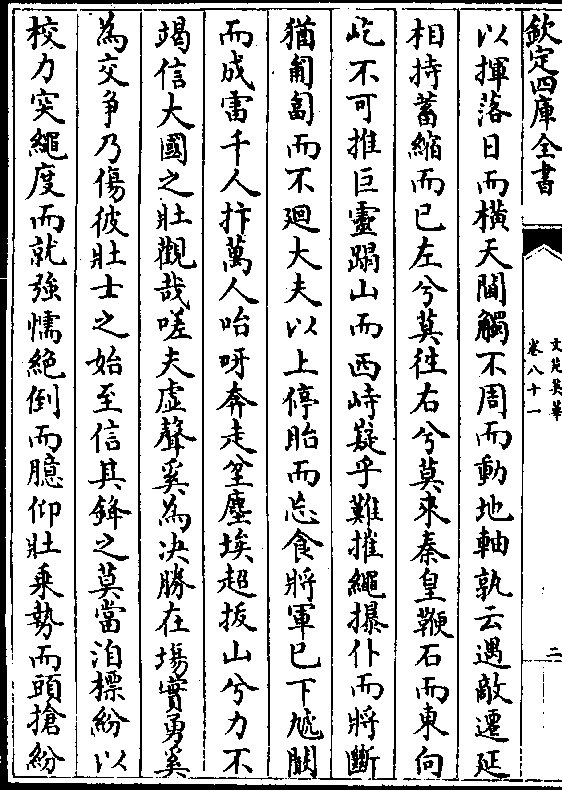 欽定四庫全書
文苑英華
卷八十一
二
以揮落日而横天闗觸不周而動地軸孰云遇敵遷延
相持蓄縮而已左兮莫往右兮莫來秦皇鞭石而東向
屹不可推巨靈蹋山而西峙嶷乎難摧繩㬥仆而將斷
猶匍匐而不廻大夫以上停眙而忘食將軍已下虓闞
而成雷千人抃萬人咍呀奔走坌塵埃超拔山兮力不
竭信大國之壯觀哉嗟夫虚聲奚為决勝在塲實勇奚
為交争乃傷彼壯士之始至信其鋒之莫當洎標紛以
校力突繩度而就強懦絶倒而臆仰壯乘勢而頭搶紛